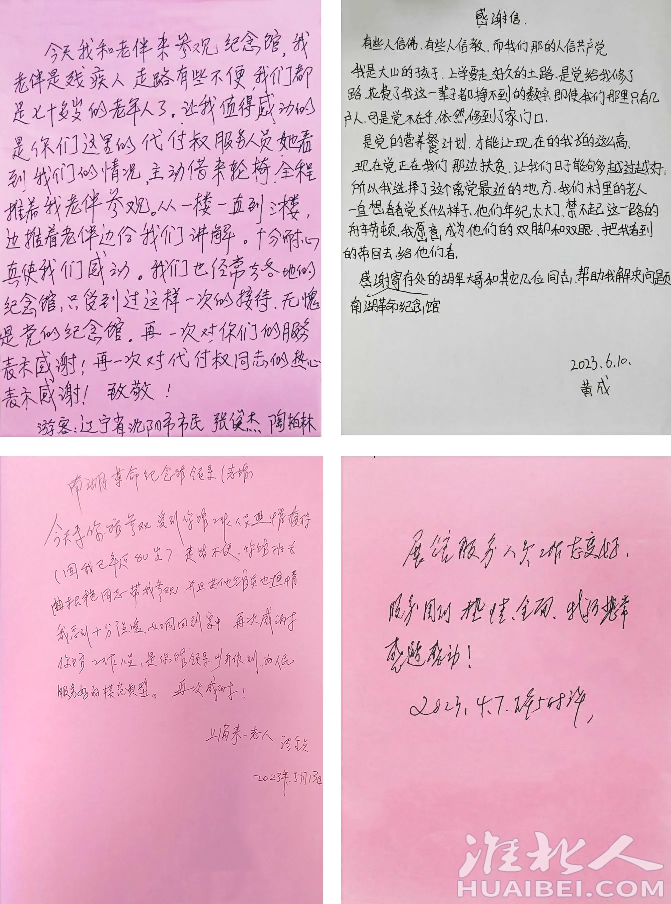 今天我和老伴来参观纪念馆,我
老伴是残疾人走路有些不便,我们都
是七十多岁的老年人了。让我值得感动的
是你们这里的代付叔服务员她看
到我们的情况,主动借来轮椅,全程
推着我老伴参观。从一楼一直到三楼,
边推着老伴边给我们讲解。十分耐心
真使我们感动。我们也经常去各地的
纪念馆,只受到过这样一次的接待,无愧
是党的纪念馆。再一次对你们的服务
表示感谢!再一次对代付叔同志的热心
表示感谢!致敬!
游客:辽宁省沈阳市市民 张俊杰 陶柏林
感谢信.
有些人信佛,有些人信教,而我们那的人信共产党
我是大山的孩子,上学要走好久的土路,是党给我修了
路,花费了我这一辈子都挣不到的数字,即使我们那里只有几
户人,可是党不在乎,依然修到了家门口.
是党的营养餐计划,才能让现在的我长的这么高.
现在党正在我们那边扶贫,让我们日子能够越过越好.
所以我选择了这个离党最近的地方.我们村里的老人
一直想看看党长什么样子,他们年纪太大了,禁不起这一路的
舟车劳顿,我愿意成为他们的双脚和双眼,把我看到
的带回去给他们看.
感谢寄存处的胡军大哥和其他几位同志,帮助我解决问题
南湖革命纪念馆
2023.6.10.
黄成
南湖革命纪念馆领导
今天来你馆参观受到你馆工作人员热情接待
(因我已年近80岁)走路不便,
同志带我参观
我感到十分温暖,
你馆工作人员,是你馆领导
服务好的模范典型。再次感谢!
上海来一老人
2023年5月13日
展馆服务人员工作态度好.
服务周到 热情、全面、我们非常
感动!
2023.4.7.
淮北人
HUAIBEI.COM